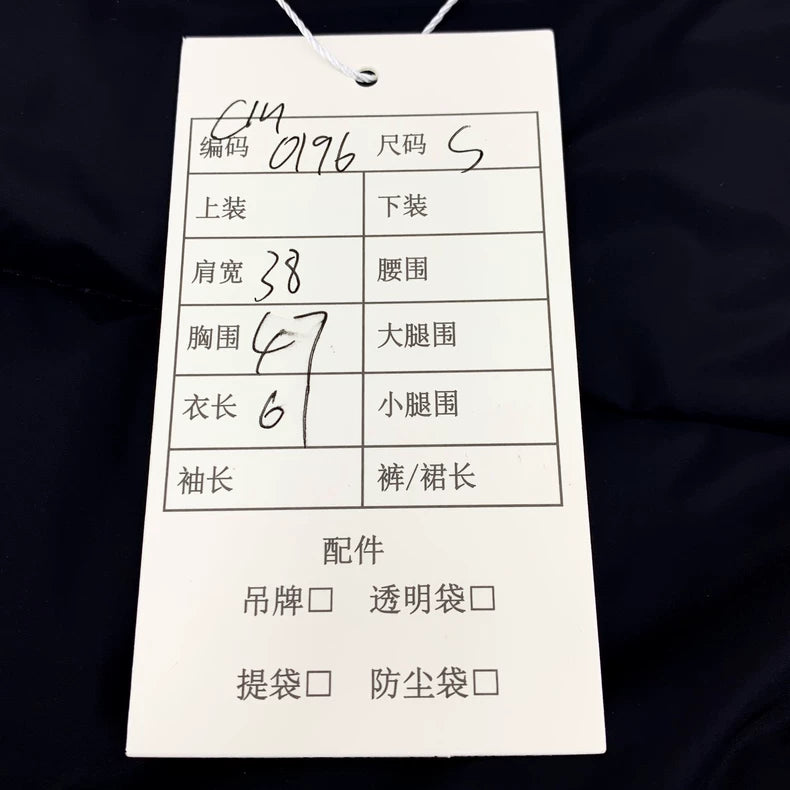 编码 0196 尺码 S
上装 下装
肩宽 38 腰围
胸围 47 大腿围
衣长 小腿围
袖长 裤/裙长
配件
吊牌□ 透明袋□
提袋□ 防尘袋□